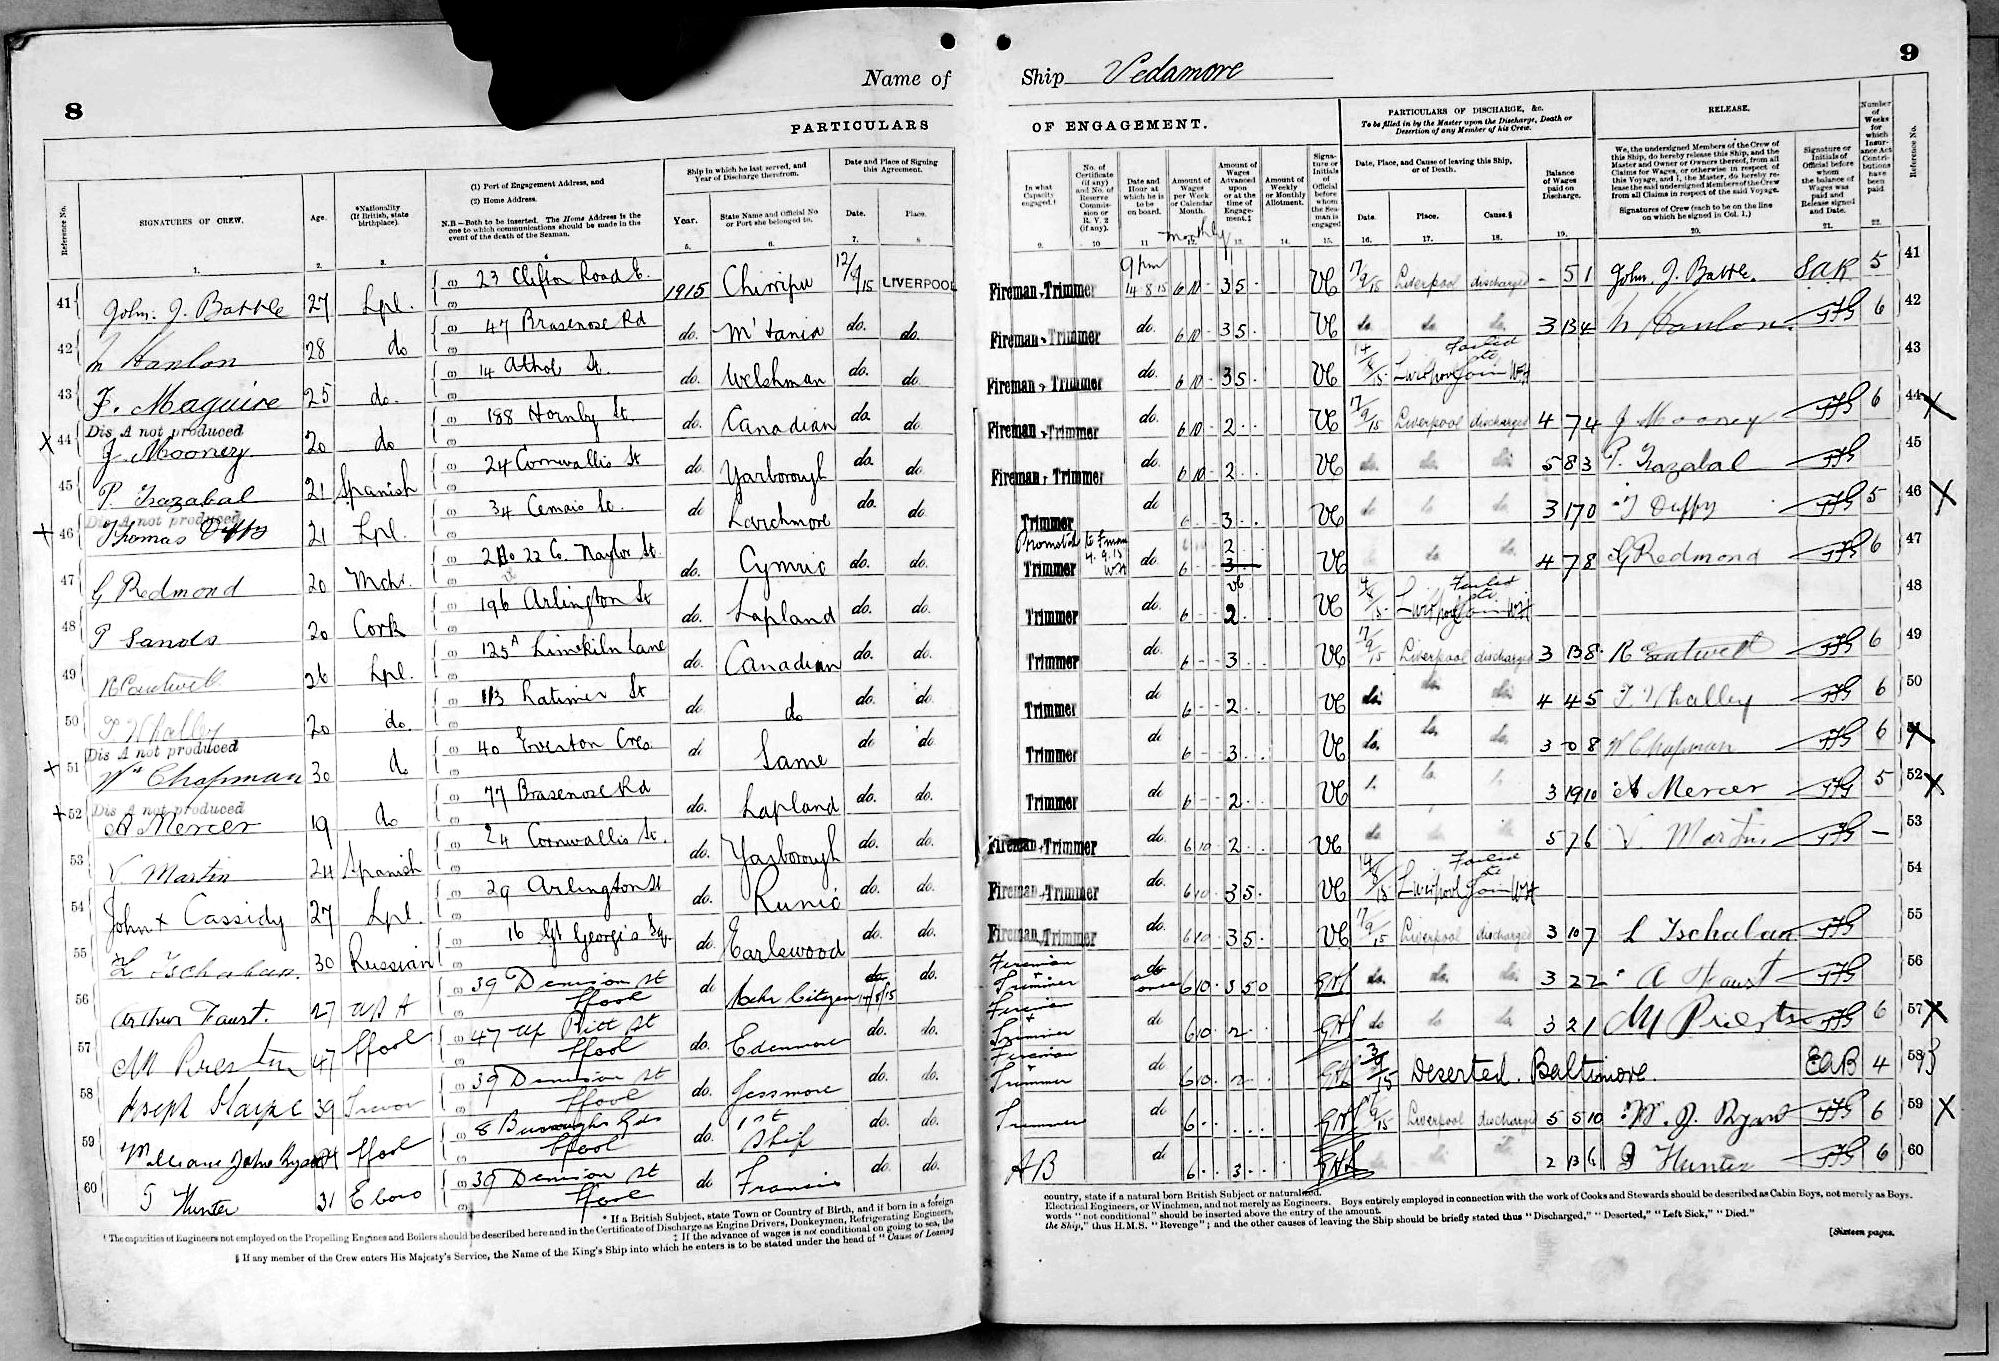 8
Name of
PARTICULARS
Reference No.
SIGNATURES OF CREW.
Age.
*Nationality (If British, state birthplace).
(1) Port of Engagement Address, and
(2) Home Address.
N.B.—Both to be inserted. The Home Address is the one to which communications should be made in the event of the death of the Seaman.
Ship in which he last served, and Year of Discharge therefrom.
Year.
State Name and Official No or Port she belonged to.
Date and Place of Signing this Agreement.
Date.
Place.
1. 2. 3. 5. 6. 7. 8
41 John. J. Battle 27 Lpl. 23 Clifton Road E. 1915 Chirripo 12/8/15 LIVERPOOL
42 Hanlon 28 do 47 Brasenose Rd do. M'tania do. do.
43 F. Maguire 25 do. 14 Athol St. do. Welshman do. do.
Dis A not produced
X 44 J. Mooney 20 do 188 Hornby St do. Canadian do. do.
45 P. 21 Spanish 24 Cornwallis St do. Yarborough do. do.
Dis A not produced
+ 46 Thomas Duffy 21 Lpl. 34 Cemais St. do Larchmore do. do.
47 G Redmond 20 Mchr. 22 Co. Naylor St. do. Cymric do. do.
48 P Sands 20 Cork 196 Arlington St do. Lapland do. do.
49 R Cantwell 26 Lpl. 125A Limekiln Lane do. Canadian do. do.
50 T Whalley 20 do. 113 Latimer St do. do do. do
Dis A not produced
+ 51 Wm Chapman 30 do 40 Everton Cres. do Same do do
Dis A not produced
+ 52 A Mercer 19 do 77 Brasenose Rd do. Lapland do. do.
53 V Martin 24 Spanish 24 Cornwallis St. do. Yarborough do. do.
54 John + Cassidy 27 Lpl. 29 Arlington St do. Runic do. do.
55 L Tschaban. 30 Russian 16 Gt George's Sq. do. Earlswood do. do.
56 Arthur Faust. 27 USA 39 Denison St Lpool do Mchr Citizen 14/8/15 do.
57 M Preston 47 Lpool 47 Up Pitt St Lpool do. Edenmore do. do.
58 Joseph 39 Trevor 39 Denison St Lpool do. Jessmore do. do.
59 William John Ryan Lpool 8 Burroughs Gds Lpool do. 1st Ship do. do.
60 Hunter 31 39 Denison St Lpool do Francis do. do.
* If a British Subject, state Town or Country of Birth, and if born in a foreign
† The capacities of Engineers not employed on the Propelling Engines and Boilers should be described here and in the Certificate of Discharge as Engine Drivers, Donkeymen, Refrigerating Engineers,
‡ If the advance of wages is not conditional on going to sea, the
§ If any member of the Crew enters His Majesty's Service, the Name of the King's Ship into which he enters is to be stated under the head of "Cause of Leaving
9
Ship Vedamore
OF ENGAGEMENT.
PARTICULARS OF DISCHARGE, &c.
To be filled in by the Master upon the Discharge, Death or Desertion of any Member of his Crew.
RELEASE.
In what Capacity engaged.†
No. of Certificate (if any) and No. of Reserve Commission or R. V. 2 (if any).
Date and Hour at which he is to be on board.
Amount of Wages per Week or Calendar Month.
Amount of Wages Advanced upon or at the time of Engagement.‡
Amount of Weekly or Monthly Allotment.
Signature or Initials of Official before whom the Seaman is engaged
Date, Place, and Cause of leaving this Ship, or of Death.
Date.
Place.
Cause.§
Balance of Wages paid on Discharge.
We, the undersigned Members of the Crew of this Ship, do hereby release this Ship, and the Master and Owner or Owners thereof, from all Claims for Wages, or otherwise in respect of this Voyage, and I, the Master, do hereby release the said undersigned Members of the Crew from all Claims in respect of the said Voyage.
Signatures of Crew (each to be on the line on which he signed in Col. 1.)
Signature or Initials of Official before whom the balance of Wages was paid and Release signed and Date.
Number of Weeks for which Insurance Act Contributions have been paid.
Reference No.
9. 10 11 12. 13. 14. 15. 16. 17. 18. 19. 20. 21. 22.
monthly
Fireman & Trimmer 9 pm 14.8.15 6 10 - 35 VC 17/9/15 Liverpool discharged - 5 1 John. J. Battle. S.A.R 5 41
Fireman & Trimmer do. 6 10 - 35 VC do. do. do. 3 13 4 Hanlon 6 42
Fireman & Trimmer do. 6 10 - 35 VC 14/8/15 Liverpool Failed to Join WH 43
Fireman & Trimmer do. 6 10 2 VC 17/9/15 Liverpool discharged 4 7 4 J Mooney 6 44 X
Fireman & Trimmer do. 6 10 - 2 VC 5 8 3 P. 45
Trimmer do 6 3 VC 3 17 0 T Duffy 5 46 X
Promoted to Fman 4.9.15 WH
Trimmer do 6 - 2 3 VC 4 7 8 G Redmond 6 47
Trimmer do. 6 2 VC 14/8/15 Liverpool Failed to Join WH 48
Trimmer do. 6 - 3 VC 17/9/15 Liverpool discharged 3 13 8 R Cantwell 6 49
Trimmer do 6 - 2 VC do. do. do. 4 4 5 T Whalley 6 50
Trimmer do 6 - 3 VC do. do. do. 3 0 8 W Chapman 6 51 X
Trimmer do 6 - 2 VC 3 19 10 A Mercer 5 52 X
Fireman & Trimmer do. 6 10 2 VC do do do 5 7 6 V. Martin - 53
Fireman & Trimmer do. 6 10 35 VC 14/8/15 Liverpool Failed to Join WH 54
Fireman & Trimmer do. 6 10 35 VC 17/9/15 Liverpool discharged 3 10 7 L Tschaban 55
Fireman + Trimmer at once 6 10 3 5 0 do. do. do. 3 2 2 A Faust 56
Fireman + Trimmer do 6 10 2 do do do 3 2 1 M Preston 6 57 X
Fireman + Trimmer do 6 10 2 Deserted. Baltimore. EAB 4 58
Trimmer do 6 17/9/15 Liverpool discharged 5 5 10 W. J. Ryan 6 59 X
AB do 6 3 2 13 6 Hunter 6 60
country, state if a natural born British Subject or naturalized.
Electrical Engineers, or Winchmen, and not merely as Engineers. Boys entirely employed in connection with the work of Cooks and Stewards should be described as Cabin Boys, not merely as Boys.
words "not conditional" should be inserted above the entry of the amount.
the Ship," thus H.M.S. "Revenge"; and the other causes of leaving the Ship should be briefly stated thus "Discharged," "Deserted," "Left Sick," "Died."
[Sixteen pages.